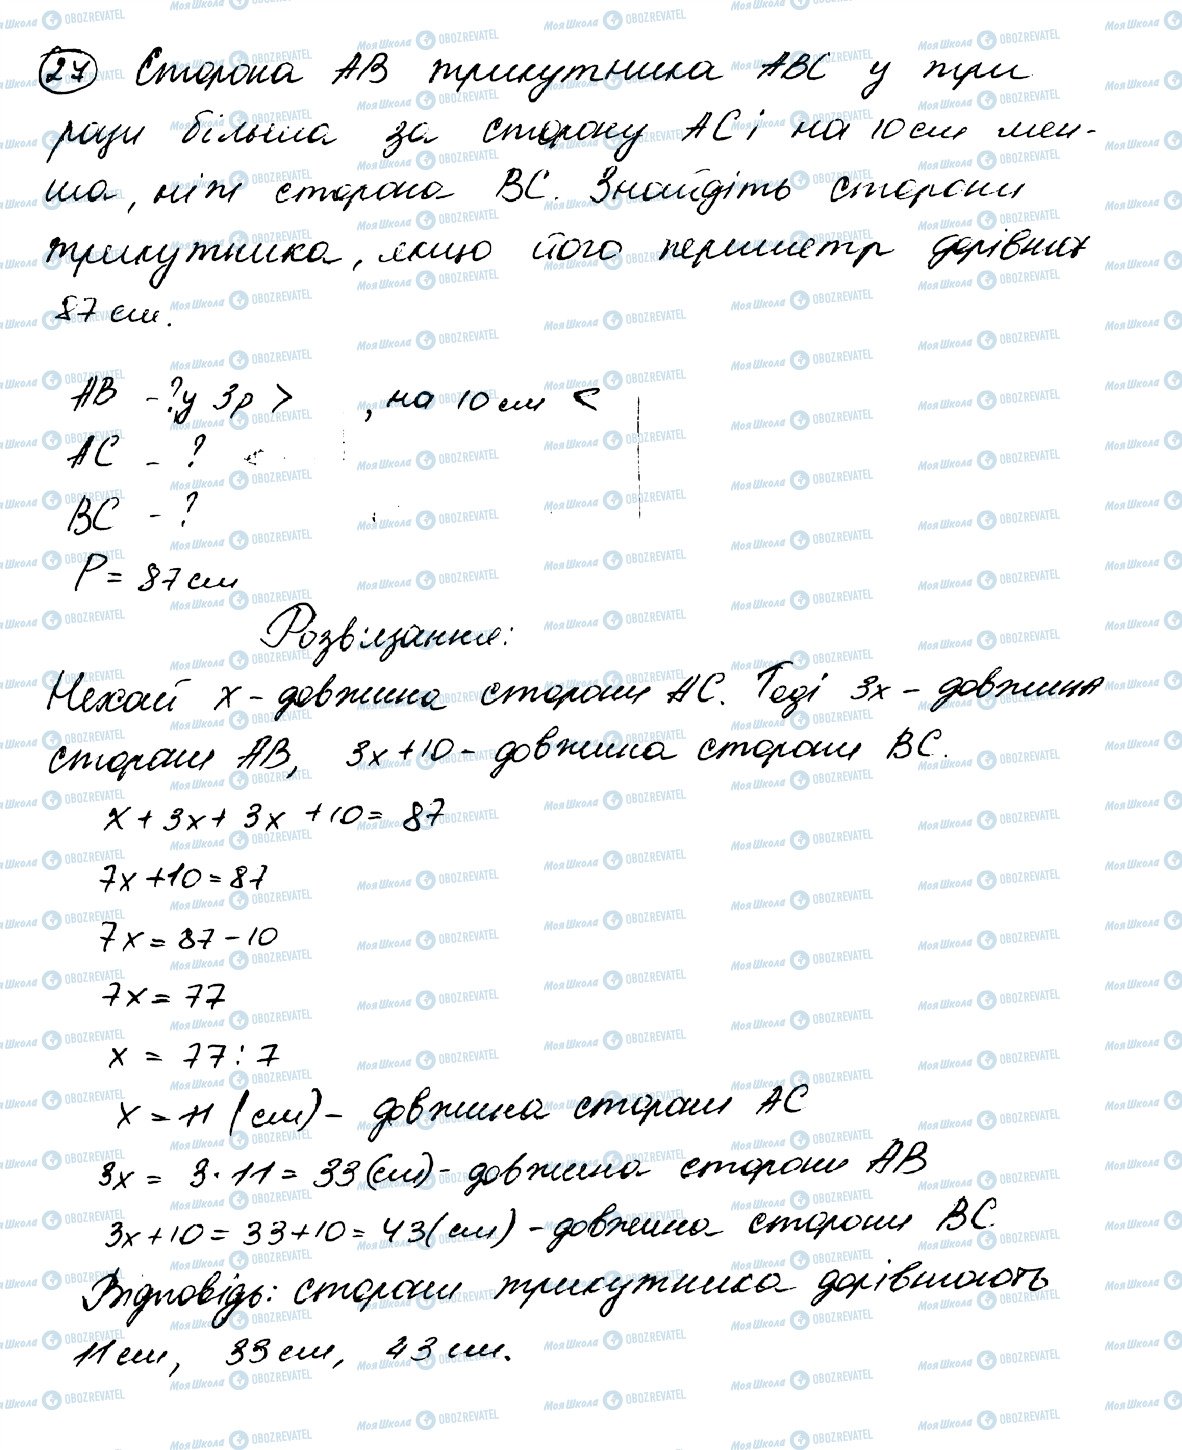 27 Сторона AB трикутника ABC у три
рази більша за сторону AC і на 10 см мен-
ша, ніж сторона BC. Знайдіть сторони
трикутника, якщо його периметр дорівнює
87 см.
AB - ? у 3р > , на 10 см <
AC - ?
BC - ?
P = 87 см
Розв'язання:
Нехай x - довжина сторони AC. Тоді 3x - довжина
сторони AB, 3x + 10 - довжина сторони BC.
x + 3x + 3x + 10 = 87
7x + 10 = 87
7x = 87 - 10
7x = 77
x = 77 : 7
x = 11 (см) - довжина сторони AC
3x = 3 · 11 = 33 (см) - довжина сторони AB
3x + 10 = 33 + 10 = 43 (см) - довжина сторони BC.
Відповідь: сторони трикутника дорівнюють
11 см, 33 см, 43 см.
Моя Школа OBOZREVATEL